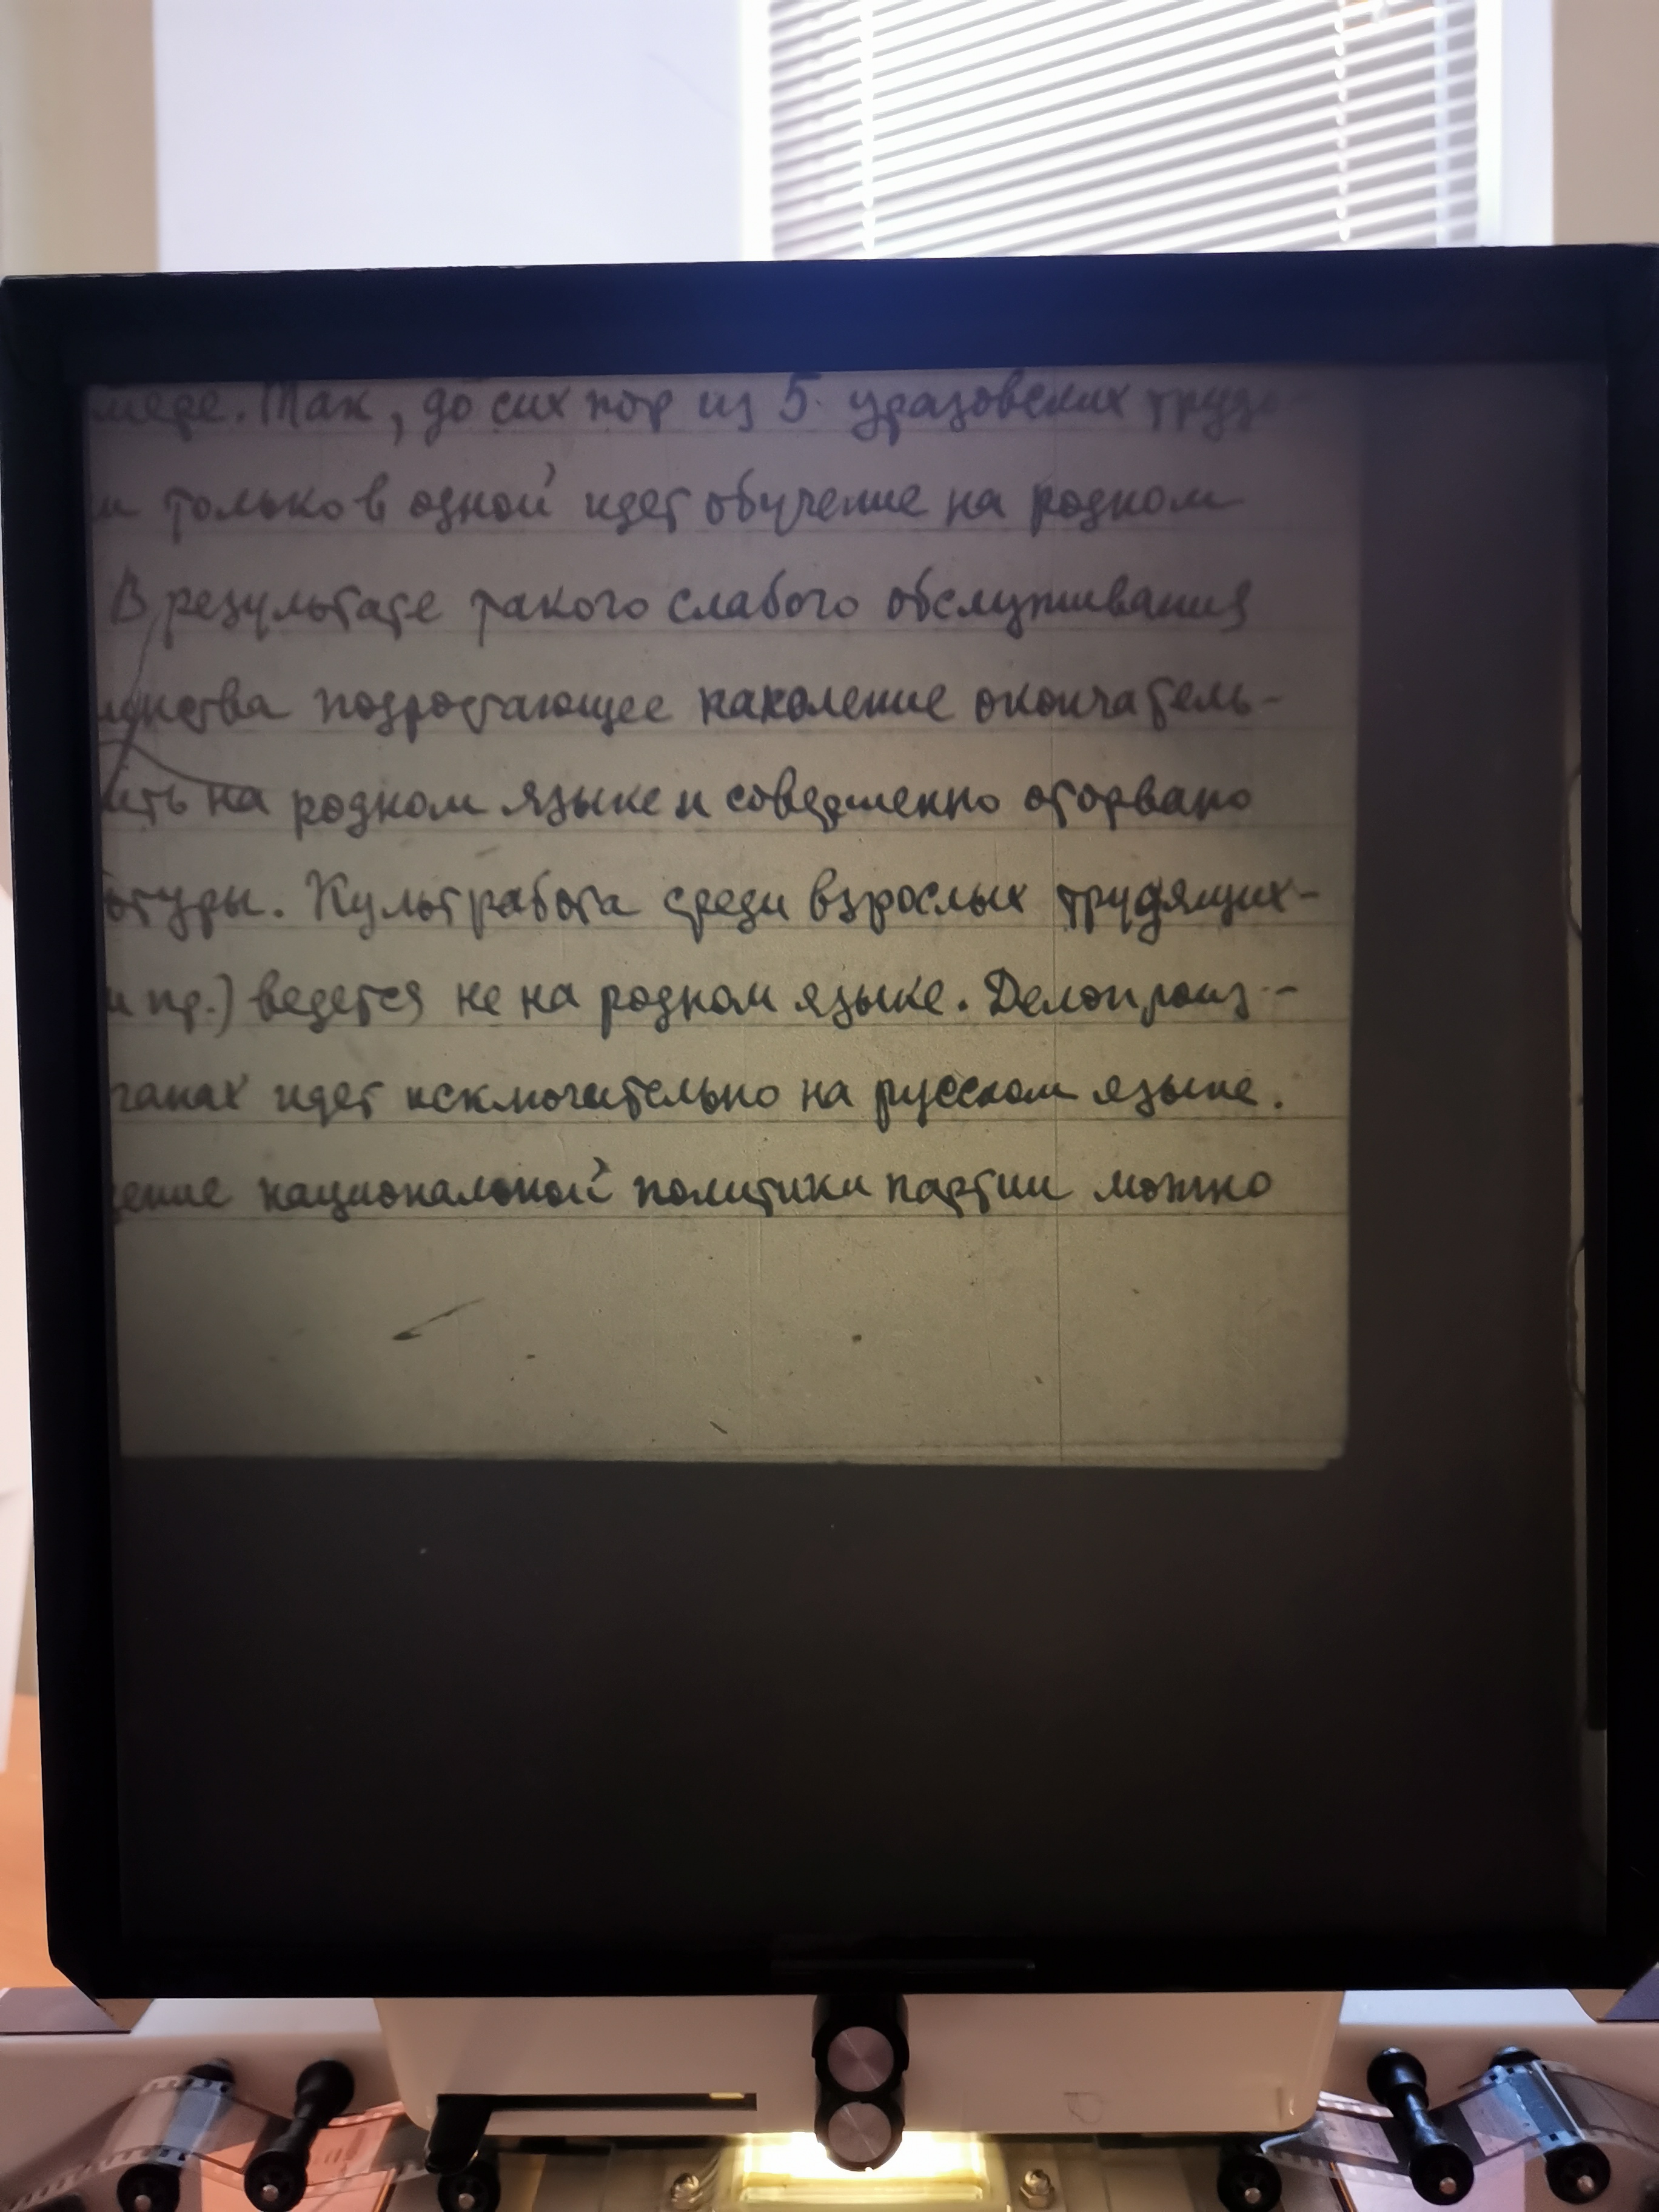 Так, до сих пор из 5 уразовских
только в одной идет обучение на родном
В результате такого слабого обслуживания
подростающее поколение окончатель-
на родном языке и совершенно оторвано
Культработа среди взрослых трудящих-
и пр.) ведется не на родном языке. Делопроиз-
идет исключительно на русском языке.
национальной политики партии можно